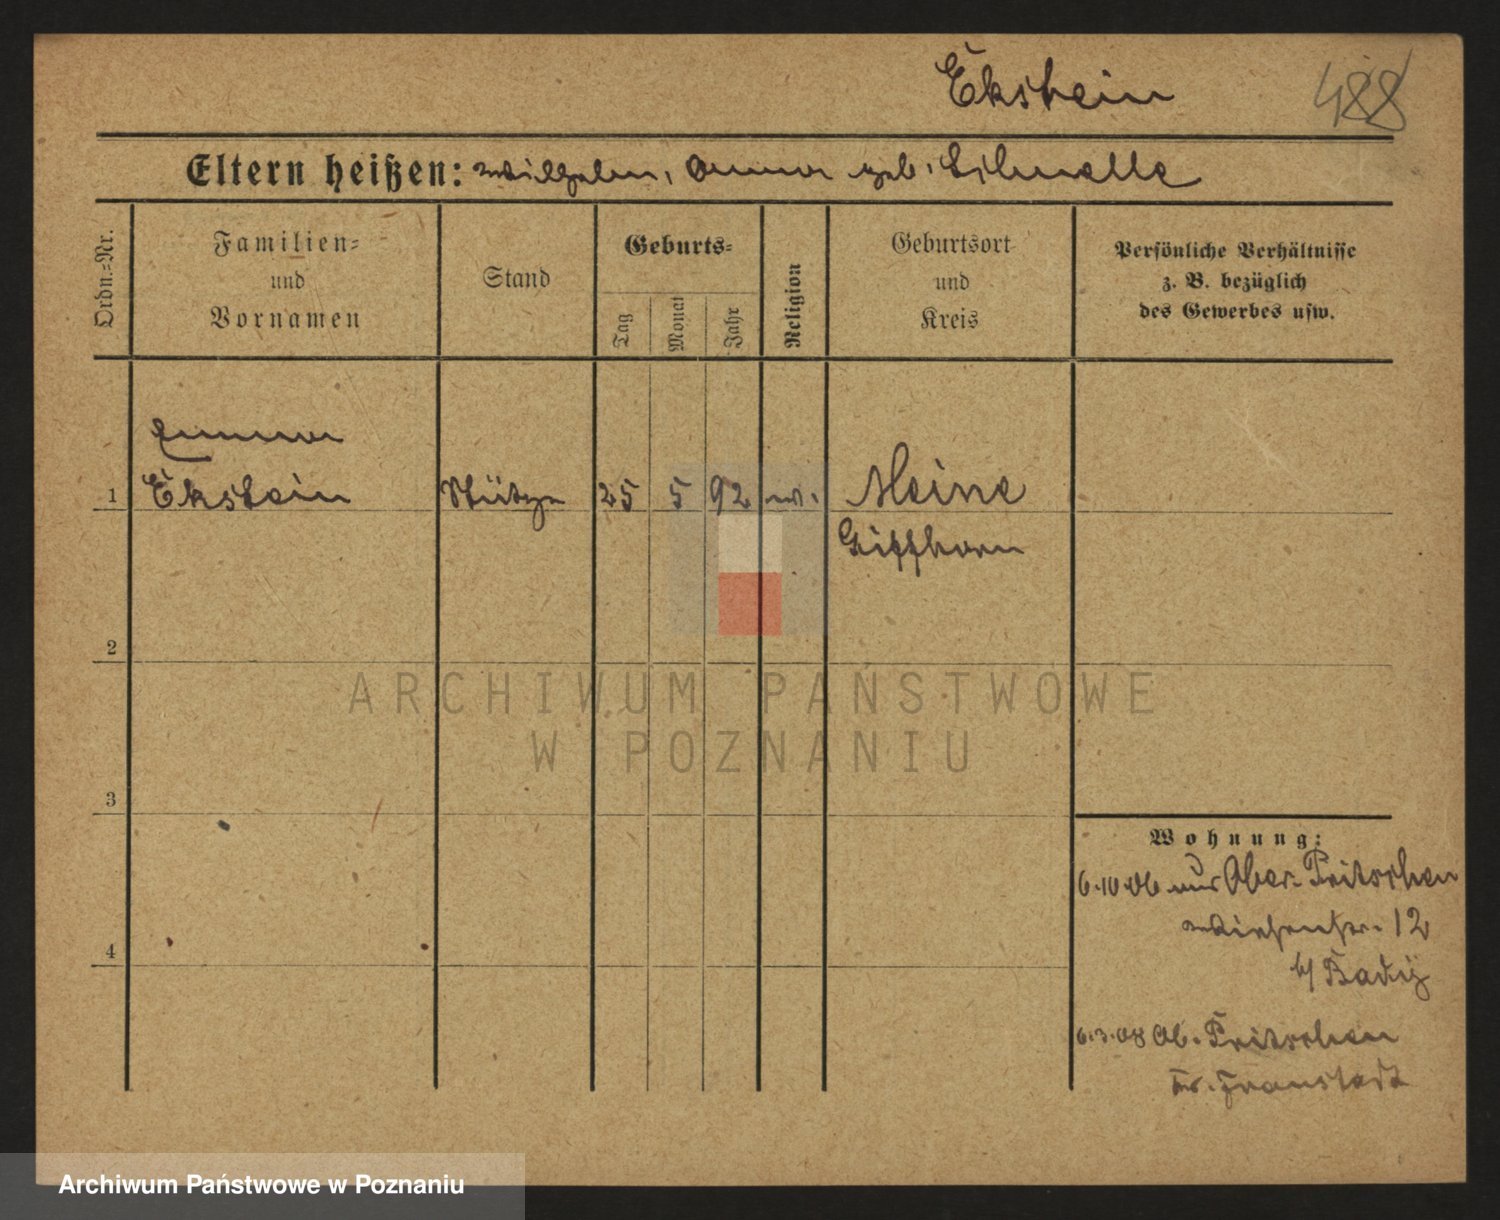 Ekstein
488
Eltern heißen: Wilhelm, Anna geb.
Ordn.=Nr.
Familien=
und
Vornamen
Stand
Geburts=
Tag
Monat
Jahr
Religion
Geburtsort
und
Kreis
Persönliche Verhältnisse
z. B. bezüglich
des Gewerbes usw.
Emma
1 Ekstein Stütze 25 5 92 ev. Meine
Giffhorn
2
3
4
Wohnung:
6.10.06 aus Ober-Pritschen
Wiesenstr. 12
b/
6.3.08 Ob. Pritschen
Kr. Fraustadt
ARCHIWUM PAŃSTWOWE
W POZNANIU
Archiwum Państwowe w Poznaniu